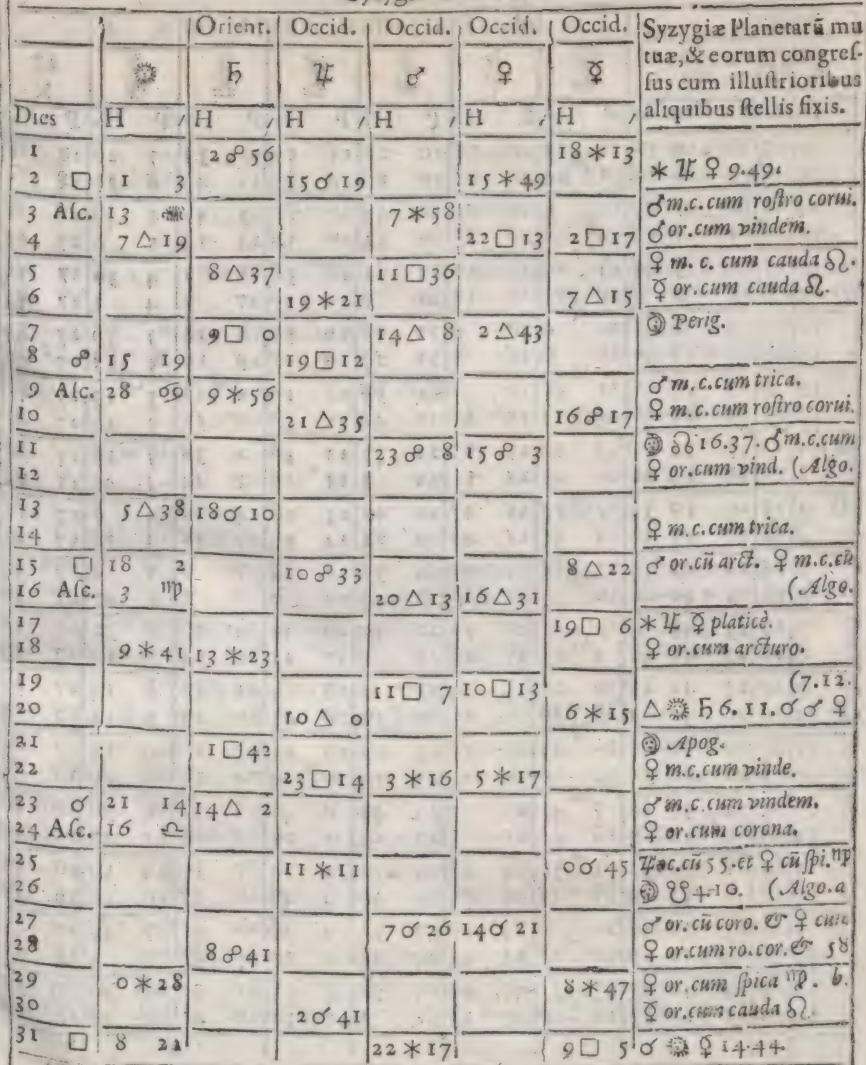 Orient. Occid. Occid. Occid. Occid. Syzygiæ Planetarũ mu
tuæ, & eorum congres-
☉ ♄ ♃ ♂ ♀ ☿ sus cum illustrioribus
aliquibus stellis fixis.
Dies H ′ H ′ H ′ H ′ H ′ H ′
1 2 ☍ 56 18 ✶ 13
2 □ 1 3 15 ☌ 19 15 ✶ 49 ✶ ♃ ♀ 9.49.
3 Asc. 13 ♒ 7 ✶ 58 ♂ m.c. cum rostro corui.
4 7 △ 19 22 □ 13 2 □ 17 ♂ or. cum vindem.
5 8 △ 37 11 □ 36 ♀ m. c. cum cauda ♌.
6 19 ✶ 21 7 △ 15 ☿ or. cum cauda ♌.
7 9 □ 0 14 △ 8 2 △ 43 ☽ Perig.
8 ☍ 15 19 19 □ 12
9 Asc. 28 ♋ 9 ✶ 56 ♂ m. c. cum trica.
10 21 △ 35 16 ☍ 17 ♀ m.c. cum rostro corui.
11 23 ☍ 8 15 ☍ 3 ☽ ☊ 16.37. ♂ m.c. cum
12 ♀ or. cum vind. (Algo.
13 5 △ 38 18 ☌ 10
14 ♀ m.c. cum trica.
15 □ 18 2 10 ☍ 33 8 △ 22 ♂ or. cũ arct. ♀ m.c. cũ
16 Asc. 3 ♍ 20 △ 13 16 △ 31 (Algo.
17 19 □ 6 ✶ ♃ ☿ platicè.
18 9 ✶ 41 13 ✶ 23 ♀ or. cum arcturo.
19 11 □ 7 10 □ 13 (7.12.
20 10 △ 0 6 ✶ 15 △ ☉ ♄ 6. 11. ☌ ♂ ♀
21 1 □ 42 ☽ Apog.
22 23 □ 14 3 ✶ 16 5 ✶ 17 ♀ m.c. cum vinde.
23 ☌ 21 14 14 △ 2 ♂ m.c. cum vindem.
24 Asc. 16 ♎ ♀ or. cum corona.
25 11 ✶ 11 0 ☌ 45 ♃ oc. cũ 5 5. et ♀ cũ spi. ♍
26 ☽ ☋ 4.10. (Algo. a
27 7 ☌ 26 14 ☌ 21 ♂ or. cũ coro. & ♀ cum
28 8 ☍ 41 ♀ or. cum ro. cor. & 5 ☿
29 0 ✶ 28 8 ✶ 47 ♀ or. cum spica ♍. b.
30 2 ☌ 41 ☿ or. cum cauda ♌.
31 □ 8 21 22 ✶ 17 9 □ 5 ☌ ☉ ☿ 14.44.